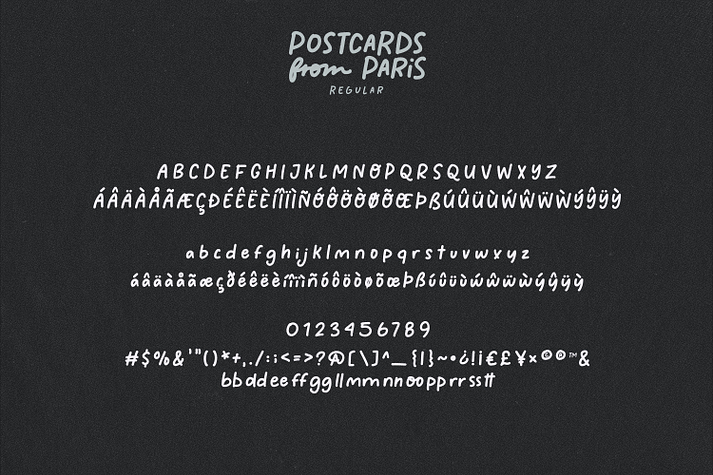 POSTCARDS
from PARiS
REGULAR
ABCDEFGHIJKLMNOPQRSQUVWXYZ
ÁÂÄÀÅÃÆÇÐÉÊËÈÍÎÏÌÑÓÔÖÒØÕŒÞßÚÛÜÙẂŴẄẀÝŶŸỲ
abcdefghijklmnopqrstuvwxyz
áâäàåãæçðéêëèíîïìñóôöòøõœþßúûüùẃŵẅẁýŷÿỳ
0123456789
#$%&'"()*+,./:;<=>?@[\]^_{|}~•¿!¡€£¥×©®™&
bbddeeffggllmmnnoopprrsstt